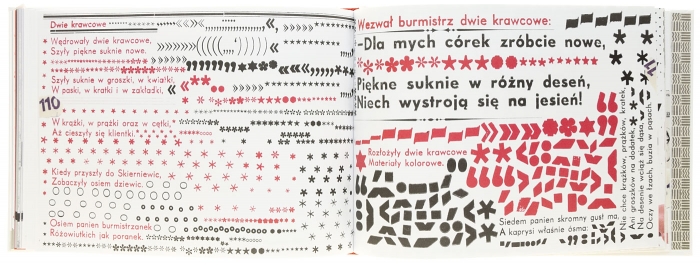 Dwie krawcowe
Wędrowały dwie krawcowe,
Szyły piękne suknie nowe.
Szyły suknie w groszki, w kwiatki,
W paski, w kratki i w zakładki,
110
W krążki, w prążki oraz w cętki,
Aż cieszyły się klientki.
Kiedy przyszły do Skierniewic,
Zobaczyły osiem dziewic.
Osiem panien burmistrzanek
Różowiutkich jak poranek.
Wezwał burmistrz dwie krawcowe:
-Dla mych córek zróbcie nowe,
Piękne suknie w różny deseń,
Niech wystroją się na jesień!
Rozłożyły dwie krawcowe
Materiały kolorowe.
Siedem panien skromny gust ma,
A kaprysi właśnie ósma:
Nie chce krążków, prążków, kratek,
Ani groszków na dodatek,
Na desenie wciąż się dąsa,
Oczy we łzach, buzia w pąsach.